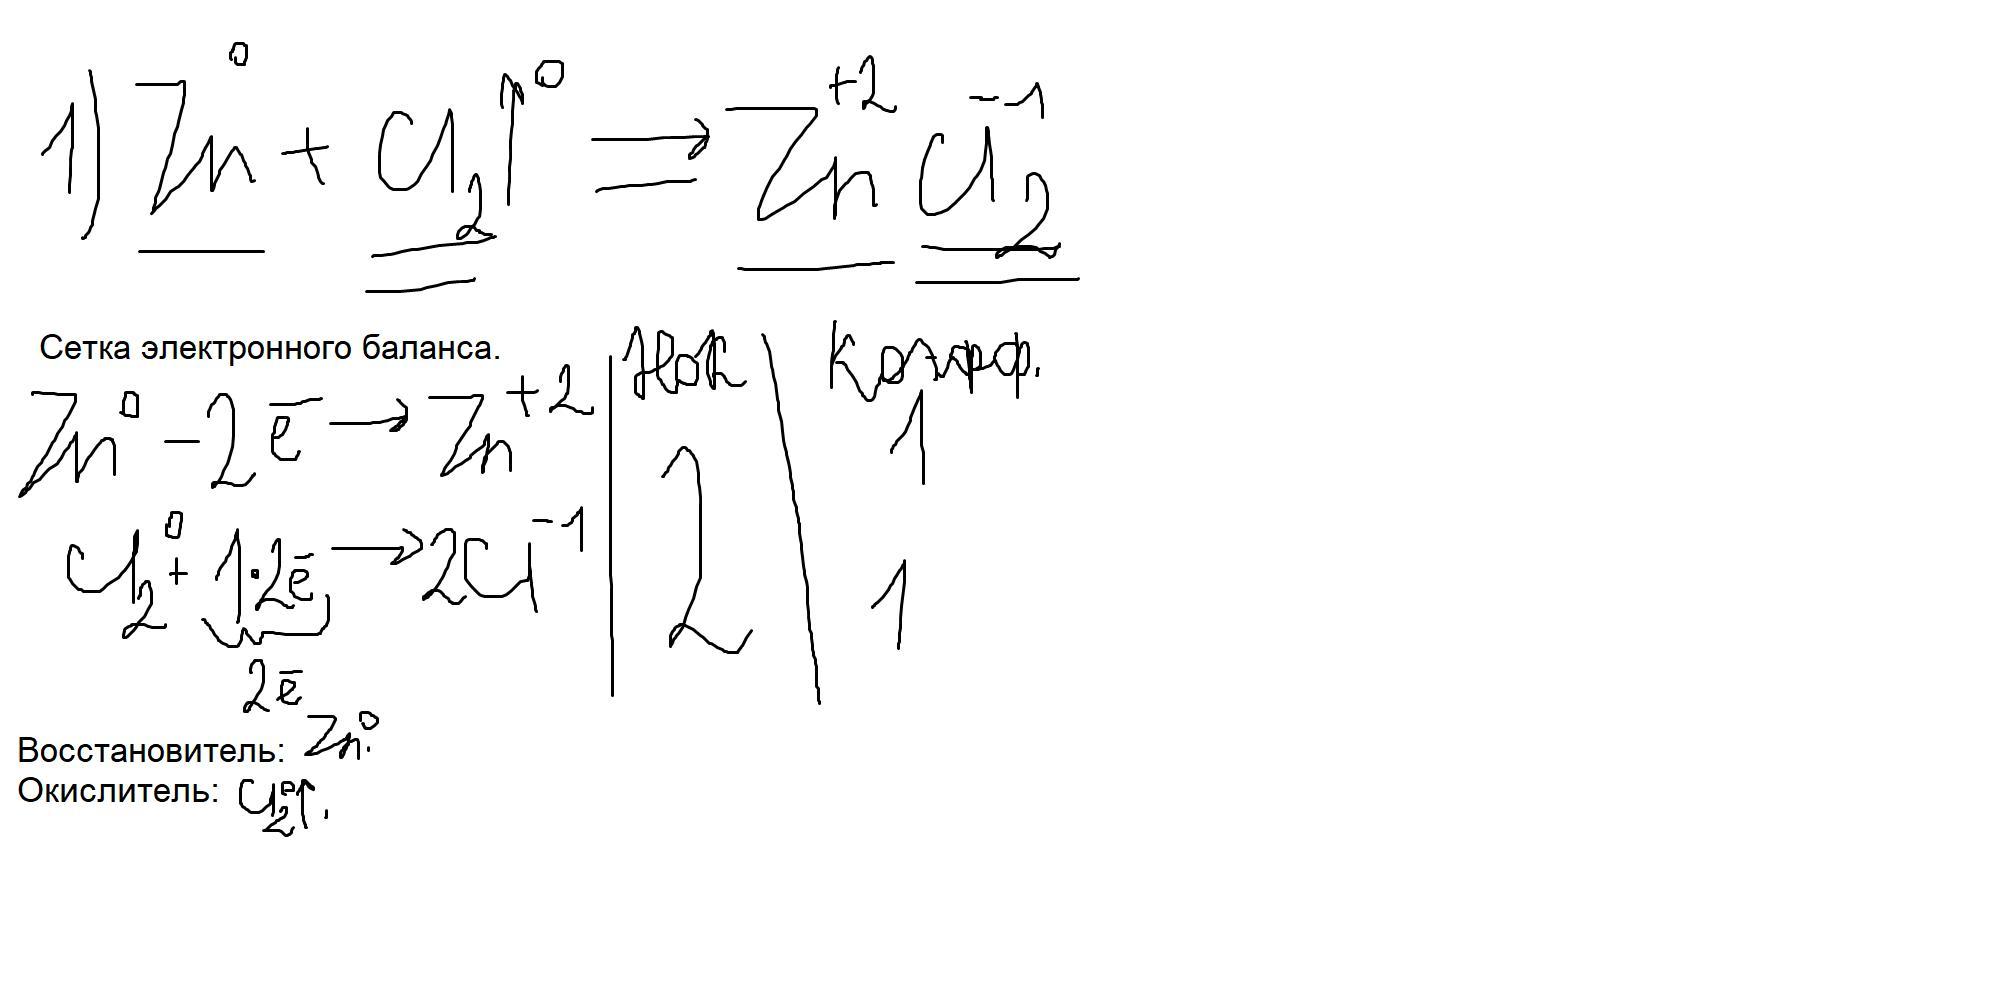 1) Zn⁰ + Cl₂↑⁰ ⇒ Zn⁺² Cl⁻¹₂
Сетка электронного баланса. | НОК | Коэфф.
Zn⁰ - 2ē → Zn⁺² | 2 | 1
Cl₂⁰ + 1·2ē → 2Cl⁻¹ | 1
2ē
Восстановитель: Zn⁰.
Окислитель: Cl₂⁰↑.